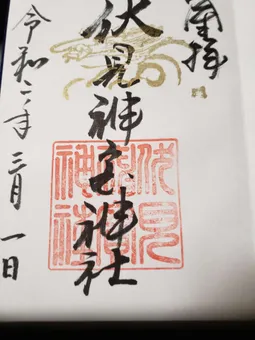 奉拝
伏見神宝神社
令和二年三月一日
伏見
神社